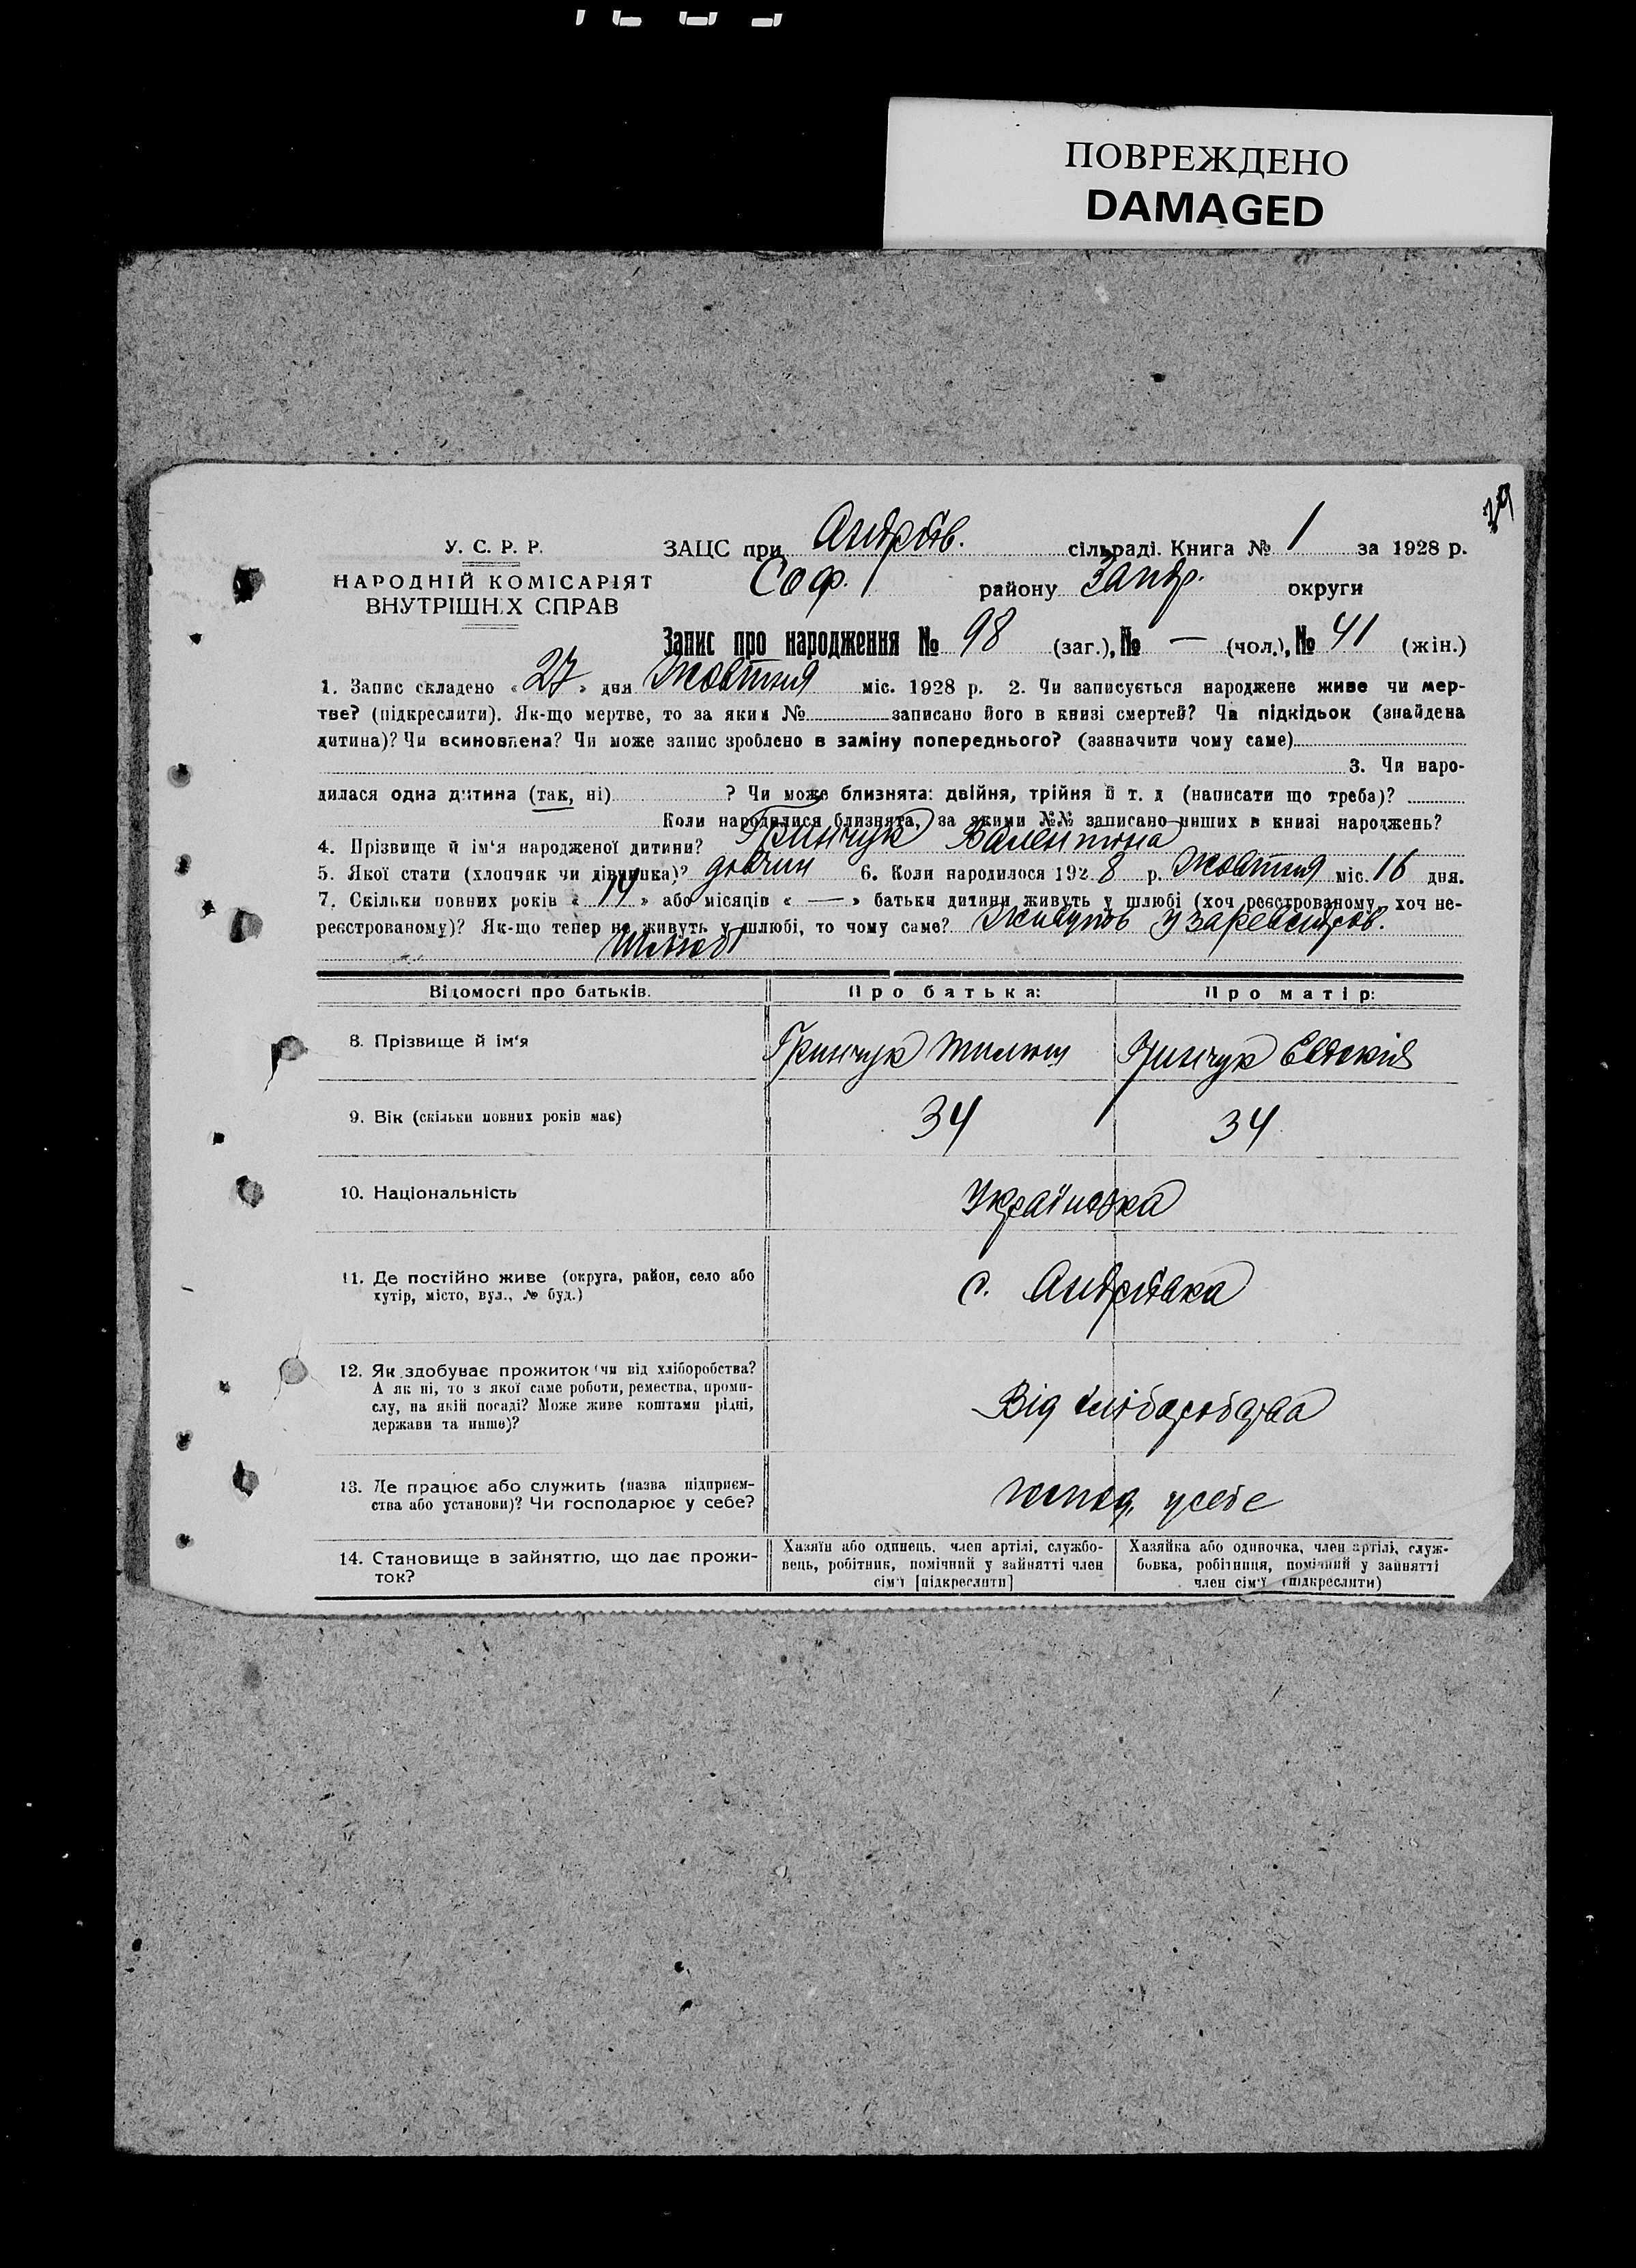 ПОВРЕЖДЕНО
DAMAGED
39
У. С. Р. Р.
НАРОДНІЙ КОМІСАРІЯТ
ВНУТРІШНІХ СПРАВ
ЗАЦС при Андріїв. сільраді. Книга № 1 за 1928 р.
Соф. району Запор. округи
Запис про народження № 98 (заг.), № — (чол.), № 41 (жін.)
1. Запис складено « 27 » дня Жовтня міс. 1928 р. 2. Чи записується народжене живе чи мер-
тве? (підкреслити). Як-що мертве, то за яким № записано його в книзі смертей? Чи підкідьок (знайдена
дитина)? Чи всиновлена? Чи може запис зроблено в заміну попереднього? (зазначити чому саме)
3. Чи наро-
дилася одна дитина (так, ні) ? Чи може близнята: двійня, трійня й т. д (написати що треба)?
Коли народилися близнята, за якими №№ записано инших в книзі народжень?
4. Прізвище й ім‘я народженої дитини? Гринчук Валентина
5. Якої стати (хлопчик чи дівчинка)? дівчин 6. Коли народилося 1928 р. Жовтня міс. 16 дня.
7. Скільки повних років « 14 » або місяців « — » батьки дитини живуть у шлюбі (хоч реєстрованому, хоч не-
реєстрованому)? Як-що тепер не живуть у шлюбі, то чому саме? Живуть у зареєстров.
шлюбі
Відомості про батьків.
Про батька:
Про матір:
8. Прізвище й ім‘я
Гринчук
Гринчук Евдокія
9. Вік (скільки повних років має)
34
34
10. Національність
Українська
11. Де постійно живе (округа, район, село або
хутір, місто, вул., № буд.)
с. Андріївка
12. Як здобуває прожиток (чи від хліборобства?
А як ні, то з якої саме роботи, ремества, проми-
слу, на якій посаді? Може живе коштами рідні,
держави та инше)?
Від хліборобства
13. Де працює або служить (назва підприєм-
ства або установи)? Чи господарює у себе?
господ. у себе
14. Становище в зайняттю, що дає прожи-
ток?
Хазяїн або одинець, член артілі, службо-
вець, робітник, помічний у зайнятті член
сім‘ї [підкреслити]
Хазяйка або одиночка, член артілі, служ-
бовка, робітниця, помічний у зайнятті
член сім‘ї (підкреслити)